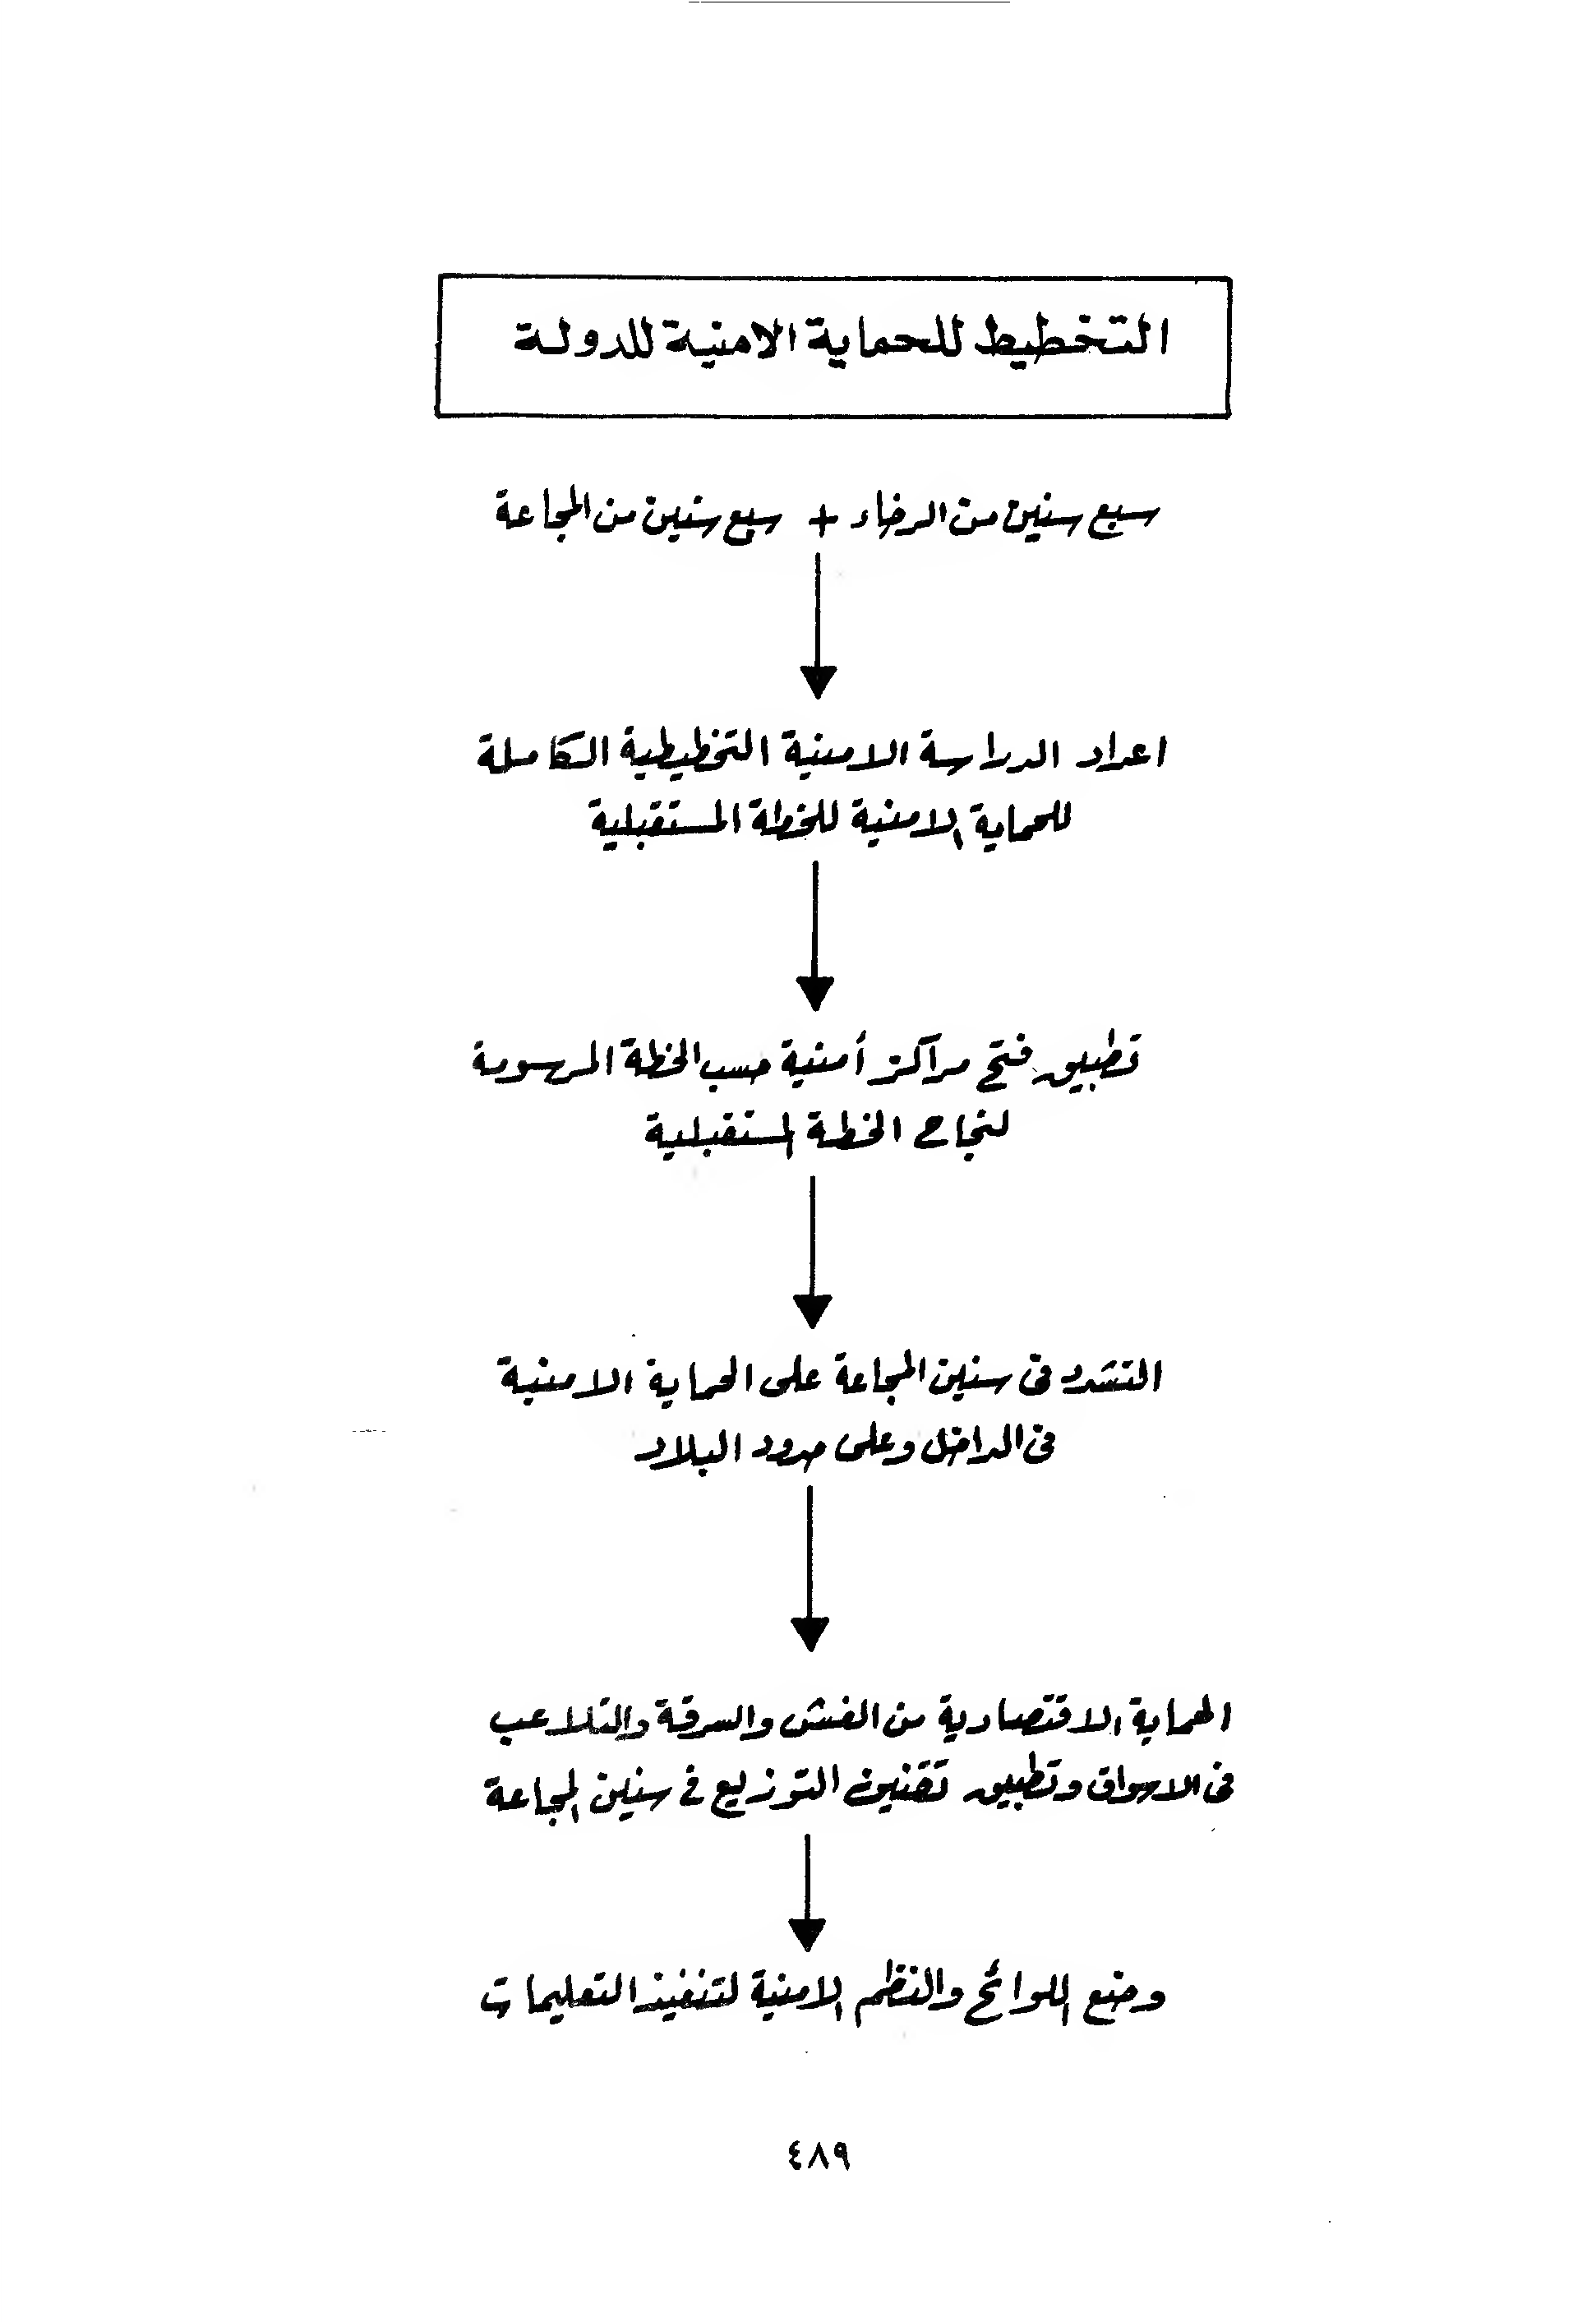 التخطيط للحماية الامنية للدولة
سبع سنين من الرخاء + سبع سنين من المجاعة
اعداد الدراسة الامنية التخطيطية الكاملة
للحماية الامنية للخطة المستقبلية
تطبيق فتح مراكز أمنية حسب الخطة المرسومة
لنجاح الخطة المستقبلية
التشدد في سنين المجاعة على الحماية الامنية
في الداخل وعلى حدود البلاد
الحماية الاقتصادية من الغش والسرقة والتلاعب
في الاسواق وتطبيق تقنين التوزيع في سنين المجاعة
وضع اللوائح والنظم الامنية لتنفيذ التعليمات
٤٨٩